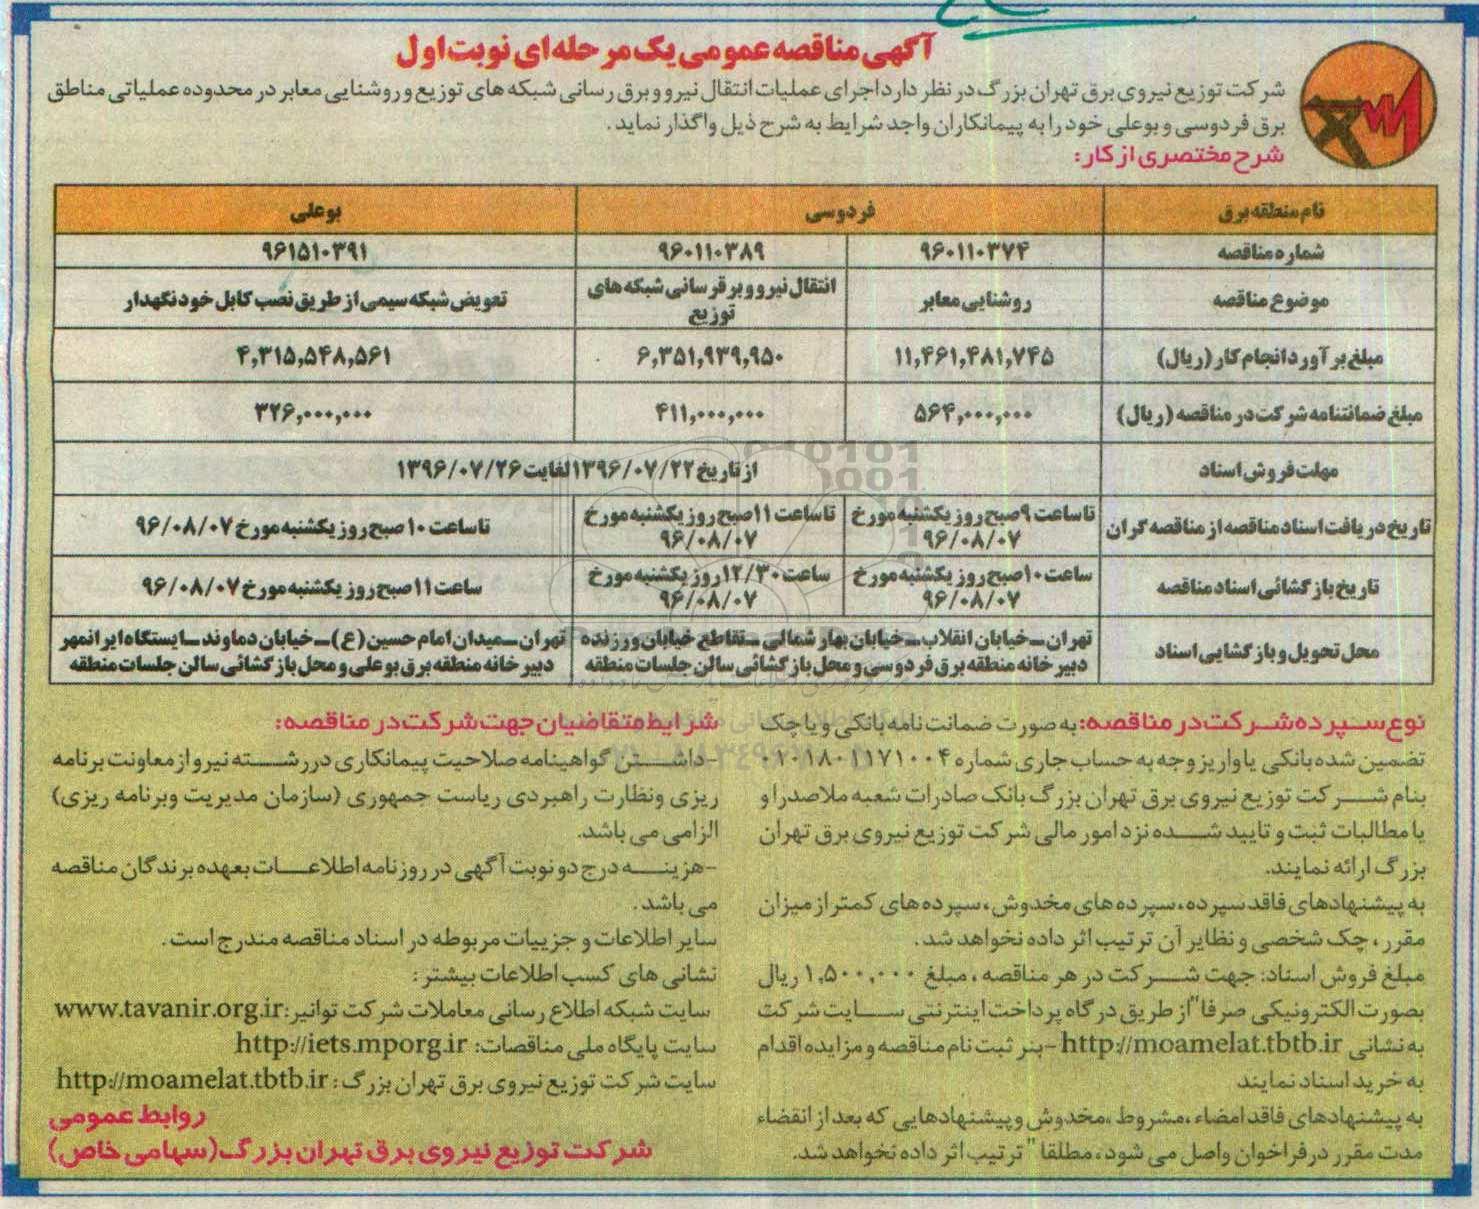 آگهی مناقصه عمومی یک مرحله ای نوبت اول
شرکت توزیع نیروی برق تهران بزرگ در نظر دارد اجرای عملیات انتقال نیرو و برق رسانی شبکه های توزیع و روشنایی معابر در محدوده عملیاتی مناطق
برق فردوسی و بوعلی خود را به پیمانکاران واجد شرایط به شرح ذیل واگذار نماید.
شرح مختصری از کار:
نام منطقه برق فردوسی بوعلی
شماره مناقصه ۹۶۰۱۱۰۳۷۴ ۹۶۰۱۱۰۳۸۹ ۹۶۱۵۱۰۳۹۱
موضوع مناقصه روشنایی معابر انتقال نیرو و برقرسانی شبکه های توزیع تعویض شبکه سیمی از طریق نصب کابل خودنگهدار
مبلغ برآورد انجام کار (ریال) ۱۱,۴۶۱,۴۸۱,۷۴۵ ۶,۳۵۱,۹۳۹,۹۵۰ ۴,۳۱۵,۵۴۸,۵۶۱
مبلغ ضمانتنامه شرکت در مناقصه (ریال) ۵۶۴,۰۰۰,۰۰۰ ۴۱۱,۰۰۰,۰۰۰ ۳۲۶,۰۰۰,۰۰۰
مهلت فروش اسناد از تاریخ ۱۳۹۶/۰۷/۲۲ لغایت ۱۳۹۶/۰۷/۲۶
تاریخ دریافت اسناد مناقصه از مناقصه گران تا ساعت ۹ صبح روز یکشنبه مورخ ۹۶/۰۸/۰۷ تا ساعت ۱۱ صبح روز یکشنبه مورخ ۹۶/۰۸/۰۷ تا ساعت ۱۰ صبح روز یکشنبه مورخ ۹۶/۰۸/۰۷
تاریخ بازگشائی اسناد مناقصه ساعت ۱۰ صبح روز یکشنبه مورخ ۹۶/۰۸/۰۷ ساعت ۱۲/۳۰ روز یکشنبه مورخ ۹۶/۰۸/۰۷ ساعت ۱۱ صبح روز یکشنبه مورخ ۹۶/۰۸/۰۷
محل تحویل و بازگشایی اسناد تهران ـ خیابان انقلاب ـ خیابان بهار شمالی ـ تقاطع خیابان ورزنده دبیرخانه منطقه برق فردوسی و محل بازگشائی سالن جلسات منطقه تهران ـ میدان امام حسین (ع) ـ خیابان دماوند ـ ایستگاه ایرانمهر دبیرخانه منطقه برق بوعلی و محل بازگشائی سالن جلسات منطقه
نوع سپرده شرکت در مناقصه: به صورت ضمانت نامه بانکی و یا چک
تضمین شده بانکی یا واریز وجه به حساب جاری شماره ۰۱۰۱۸۰۱۱۷۱۰۰۴
بنام شرکت توزیع نیروی برق تهران بزرگ بانک صادرات شعبه ملاصدرا و
یا مطالبات ثبت و تایید شده نزد امور مالی شرکت توزیع نیروی برق تهران
بزرگ ارائه نمایند.
به پیشنهادهای فاقد سپرده، سپرده های مخدوش، سپرده های کمتر از میزان
مقرر، چک شخصی و نظایر آن ترتیب اثر داده نخواهد شد.
مبلغ فروش اسناد: جهت شرکت در هر مناقصه، مبلغ ۱,۵۰۰,۰۰۰ ریال
بصورت الکترونیکی صرفا" از طریق درگاه پرداخت اینترنتی سایت شرکت
به نشانی http://moamelat.tbtb.ir - بنر ثبت نام مناقصه و مزایده اقدام
به خرید اسناد نمایند
به پیشنهادهای فاقد امضاء، مشروط، مخدوش و پیشنهادهایی که بعد از انقضاء
مدت مقرر در فراخوان واصل می شود، مطلقا" ترتیب اثر داده نخواهد شد.
شرایط متقاضیان جهت شرکت در مناقصه:
-داشتن گواهینامه صلاحیت پیمانکاری در رشته نیرو از معاونت برنامه
ریزی ونظارت راهبردی ریاست جمهوری (سازمان مدیریت وبرنامه ریزی)
الزامی می باشد.
-هزینه درج دو نوبت آگهی در روزنامه اطلاعات بعهده برندگان مناقصه
می باشد.
سایر اطلاعات و جزییات مربوطه در اسناد مناقصه مندرج است.
نشانی های کسب اطلاعات بیشتر:
سایت شبکه اطلاع رسانی معاملات شرکت توانیر: www.tavanir.org.ir
سایت پایگاه ملی مناقصات: http://iets.mporg.ir
سایت شرکت توزیع نیروی برق تهران بزرگ: http://moamelat.tbtb.ir
روابط عمومی
شرکت توزیع نیروی برق تهران بزرگ (سهامی خاص)